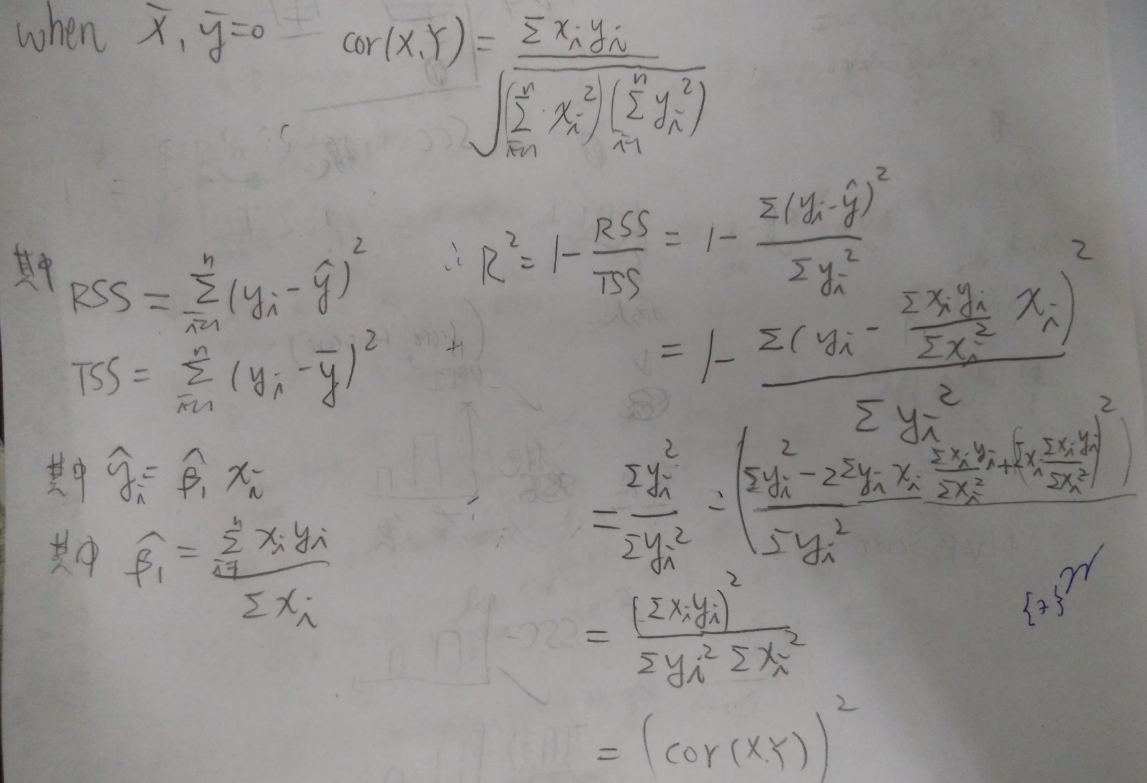 when x̄, ȳ=0 cor(X,Y) = Σ x_i y_i / √((Σ_{i=1}^n x_i²)(Σ_{i=1}^n y_i²))
其中 RSS = Σ_{i=1}^n (y_i - ŷ)²
TSS = Σ_{i=1}^n (y_i - ȳ)²
其中 ŷ_i = β̂₁ x_i
其中 β̂₁ = Σ_{i=1}^n x_i y_i / Σ x_i
∴ R² = 1 - RSS/TSS = 1 - Σ(y_i - ŷ)² / Σ y_i²
= 1 - Σ(y_i - (Σ x_i y_i / Σ x_i²) x_i)² / Σ y_i²
= Σ y_i² / Σ y_i² - ((Σ y_i² - 2Σ y_i x_i (Σ x_i y_i / Σ x_i²) + (Σ x_i (Σ x_i y_i / Σ x_i²))²) / Σ y_i²)
= (Σ x_i y_i)² / (Σ y_i² Σ x_i²)
= (cor(X,Y))²